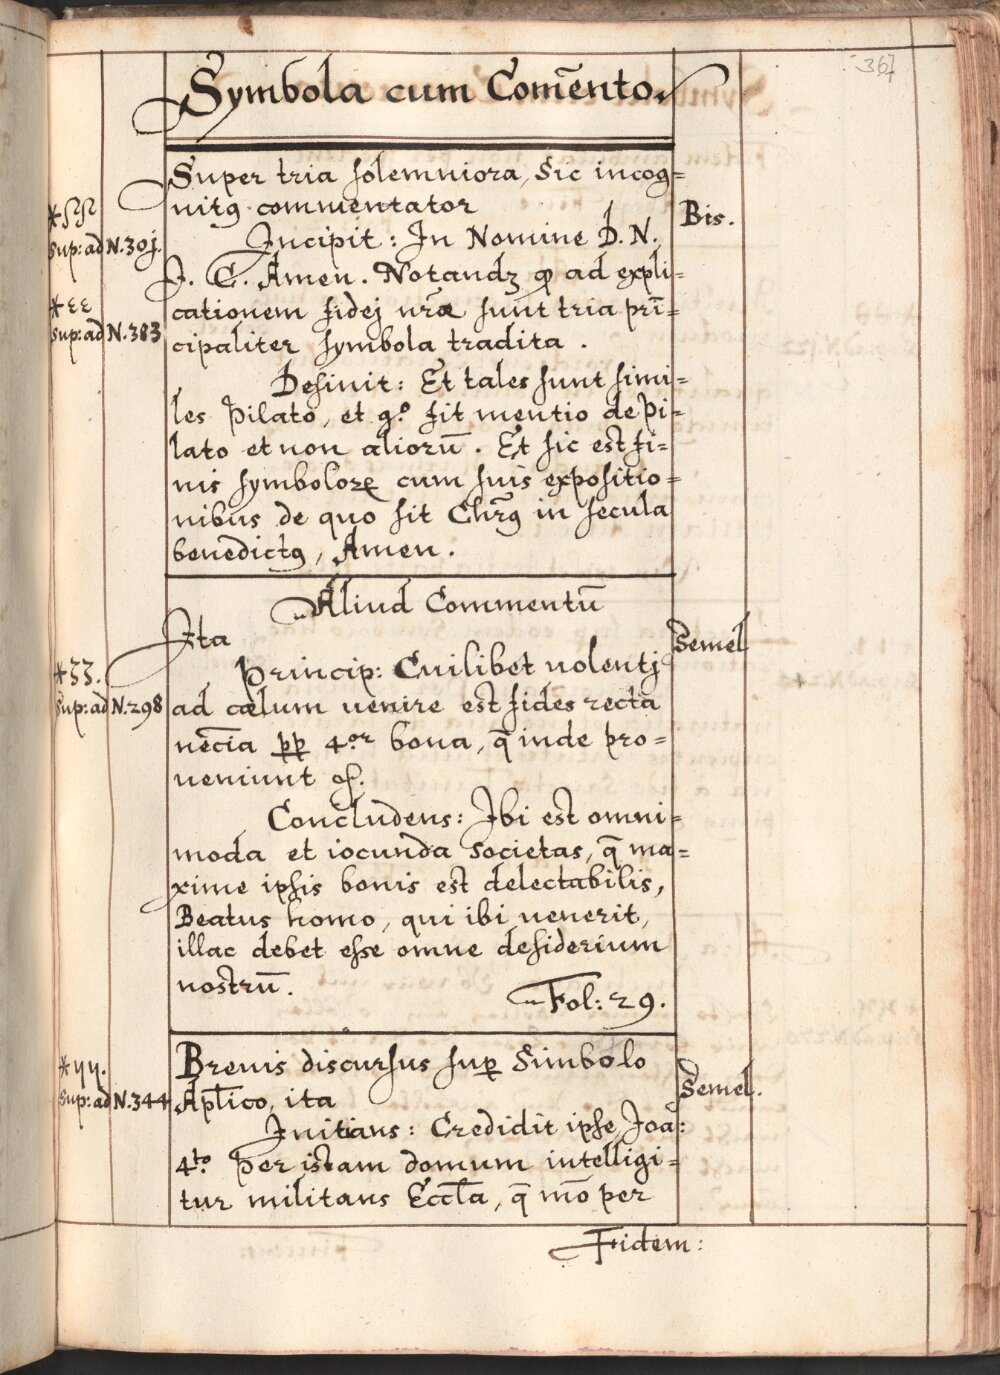 367
Symbola cum Com̄ento.
Super tria solemniora, Sic incog=
nitꝰ commentator
Bis.
Incipit: In Nomine D. N.
Sup: ad N. 301.
J. C. Amen. Notandꝫ ꝙ ad expli=
cationem fidej nr̄æ sunt tria prī=
Sup: ad N. 383
cipaliter symbola tradita.
Definit: Et tales sunt simi=
les Pilato, et gº. fit mentio de Pi=
lato et non aliorū. Et sic est fi=
nis symboloꝝ cum suis expositio=
nibus de quo sit Chr̄ꝰ in secula
benedictꝰ, Amen.
Aliud Commentū
Ita
Semel
Princip: Cuilibet uolentj
*33.
Sup: ad N. 298
ad cælum uenire est fides recta
nec̄ia pp̄ 4.or bona, q̄ inde pro=
ueniunt
Concludens: Ibi est omni=
moda et iocunda societas, q̄ ma=
xime ipsis bonis est delectabilis,
Beatus homo, qui ibi uenerit,
illac debet esse omne desiderium
nostrū.
Fol: 29.
Breuis discursus suꝑ Simbolo
*yy.
Sup: ad N. 344
Apl̄ico, ita
Semel.
Initians: Credidit ipse Joā:
4.to Per istam domum intelligi=
tur militans Eccl̄a, q̄ mō per
Fidem: